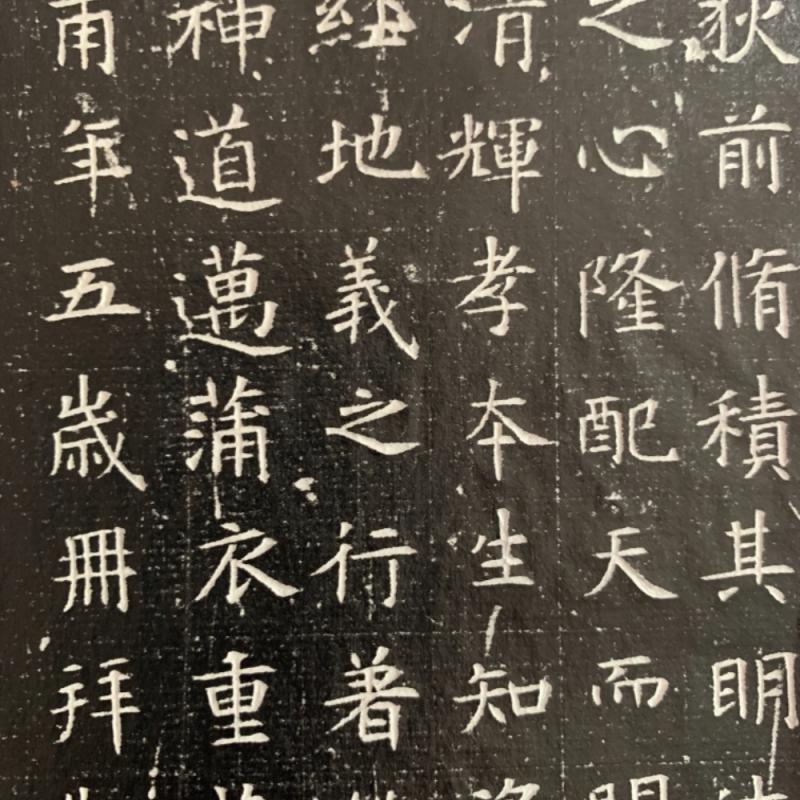 前脩積其眀
之心隆配天而
清輝孝本生知
經地義之行著
神道邁蒲衣重
甫年五歲冊拜